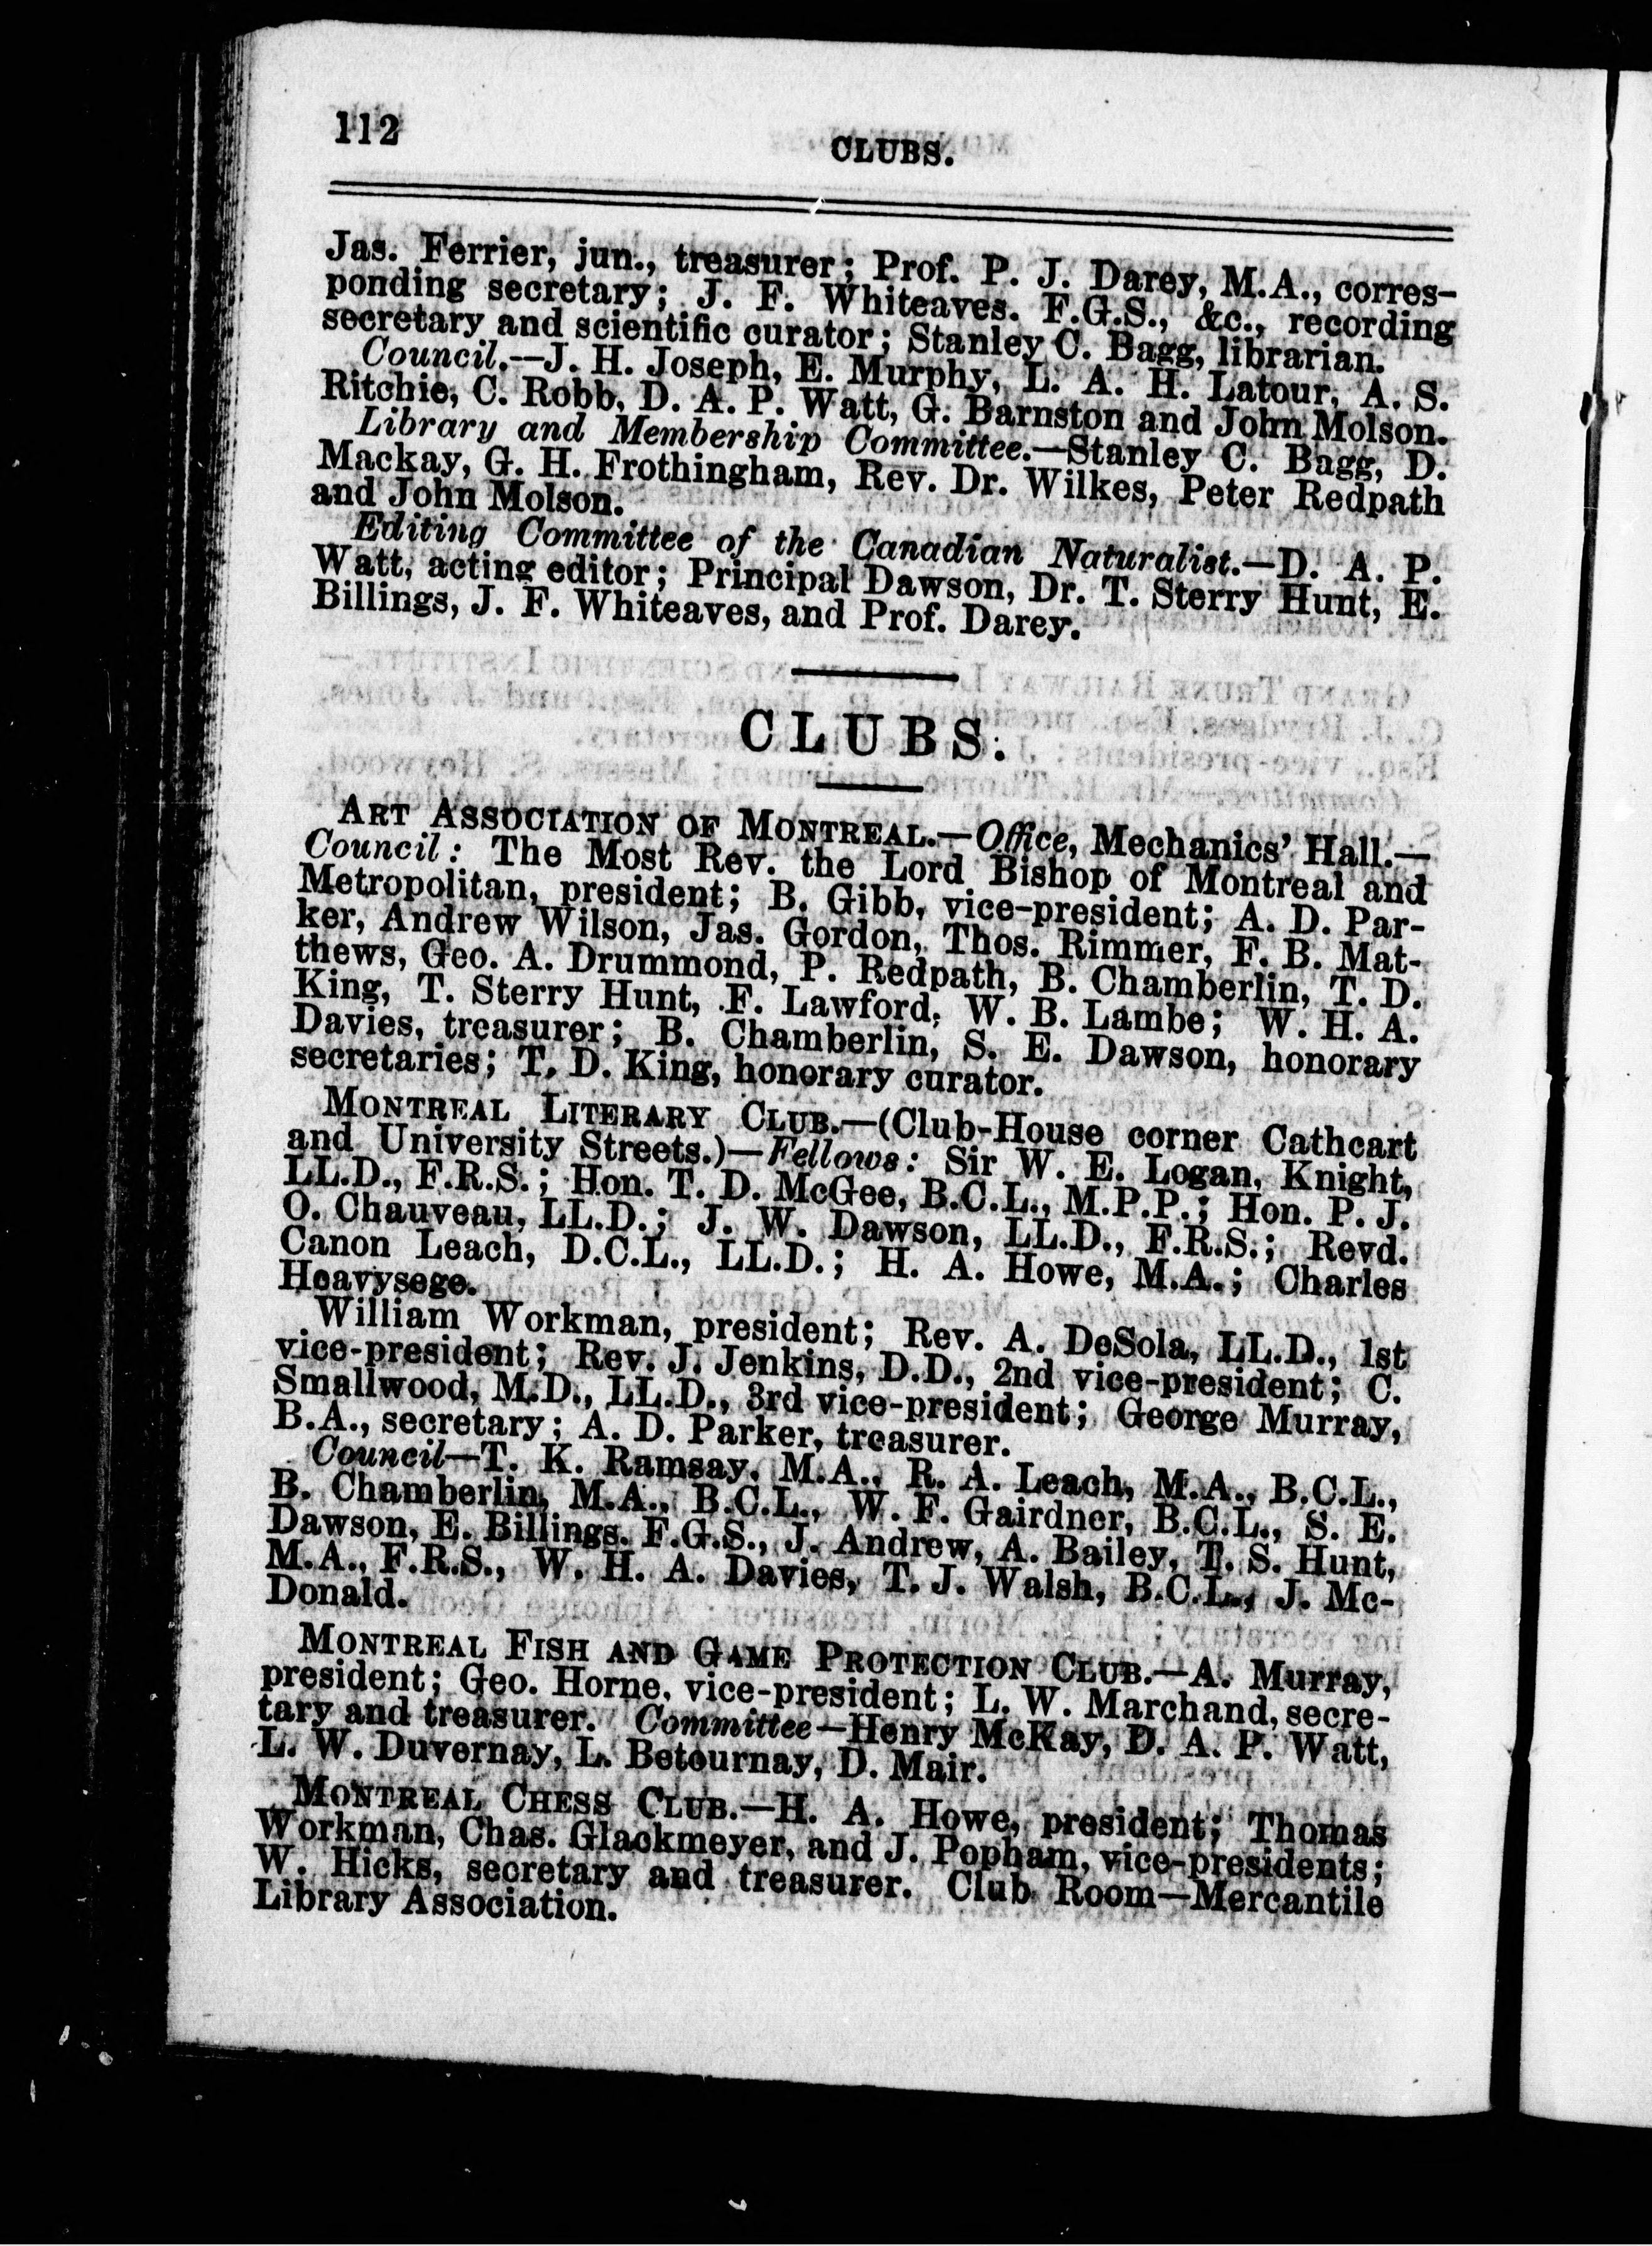 112
CLUBS.
Jas. Ferrier, jun., treasurer; Prof. P. J. Darey, M.A., corres-
ponding secretary; J. F. Whiteaves. F.G.S., &c., recording
secretary and scientific curator; Stanley C. Bagg, librarian.
Council.—J. H. Joseph, E. Murphy, L. A. H. Latour, A. S.
Ritchie, C. Robb, D. A. P. Watt, G. Barnston and John Molson.
Library and Membership Committee.—Stanley C. Bagg, D.
Mackay, G. H. Frothingham, Rev. Dr. Wilkes, Peter Redpath
and John Molson.
Editing Committee of the Canadian Naturalist.—D. A. P.
Watt, acting editor; Principal Dawson, Dr. T. Sterry Hunt, E.
Billings, J. F. Whiteaves, and Prof. Darey.
CLUBS.
ART ASSOCIATION OF MONTREAL.—Office, Mechanics' Hall.—
Council: The Most Rev. the Lord Bishop of Montreal and
Metropolitan, president; B. Gibb, vice-president; A. D. Par-
ker, Andrew Wilson, Jas. Gordon, Thos. Rimmer, F. B. Mat-
thews, Geo. A. Drummond, P. Redpath, B. Chamberlin, T. D.
King, T. Sterry Hunt, F. Lawford, W. B. Lambe; W. H. A.
Davies, treasurer; B. Chamberlin, S. E. Dawson, honorary
secretaries; T. D. King, honorary curator.
MONTREAL LITERARY CLUB.—(Club-House corner Cathcart
and University Streets.)—Fellows: Sir W. E. Logan, Knight,
LL.D., F.R.S.; Hon. T. D. McGee, B.C.L., M.P.P.; Hon. P. J.
O. Chauveau, LL.D.; J. W. Dawson, LL.D., F.R.S.; Revd.
Canon Leach, D.C.L., LL.D.; H. A. Howe, M.A.; Charles
Heavysege.
William Workman, president; Rev. A. DeSola, LL.D., 1st
vice-president; Rev. J. Jenkins, D.D., 2nd vice-president; C.
Smallwood, M.D., LL.D., 3rd vice-president; George Murray,
B.A., secretary; A. D. Parker, treasurer.
Council—T. K. Ramsay, M.A., R. A. Leach, M.A., B.C.L.,
B. Chamberlin, M.A., B.C.L., W. F. Gairdner, B.C.L., S. E.
Dawson, E. Billings. F.G.S., J. Andrew, A. Bailey, T. S. Hunt,
M.A., F.R.S., W. H. A. Davies, T. J. Walsh, B.C.L., J. Mc-
Donald.
MONTREAL FISH AND GAME PROTECTION CLUB.—A. Murray,
president; Geo. Horne, vice-president; L. W. Marchand, secre-
tary and treasurer. Committee—Henry McKay, D. A. P. Watt,
L. W. Duvernay, L. Betournay, D. Mair.
MONTREAL CHESS CLUB.—H. A. Howe, president; Thomas
Workman, Chas. Glackmeyer, and J. Popham, vice-presidents;
W. Hicks, secretary and treasurer. Club Room—Mercantile
Library Association.